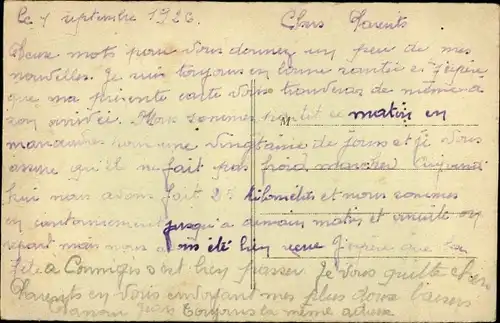 Le 7 septembre 1926. Chers Parents
Deux mots pour vous donner un peu de mes
nouvelles. Je suis toujours en bonne santée et J'éspère
que ma présente carte vous trouveras de même a
son arrivée. Nous sommes ce matin en
manœuvres une vingtaine de jours et je vous
assure qu'il ne fait pas froid marcher
hui nous avons fait 25 kilomètres et nous sommes
en cantonnement jusqu'a demain matin et ensuite on
repart mais nous a été bien reçue J'éspère que la
fête a Connigis s'est bien passer. Je vous quitte chers
Parents en vous envoyant mes plus doux baisers
toujours la même